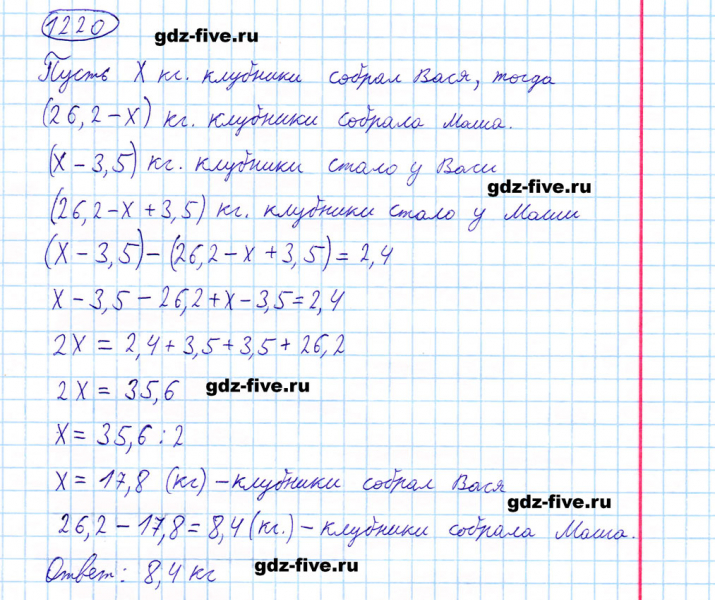 1220
gdz-five.ru
Пусть X кг. клубники собрал Вася, тогда
(26,2-X) кг. клубники собрала Маша.
(X-3,5) кг. клубники стало у Васи
gdz-five.ru
(26,2-X+3,5) кг. клубники стало у Маши
(X-3,5)-(26,2-X+3,5)=2,4
X-3,5-26,2+X-3,5=2,4
2X=2,4+3,5+3,5+26,2
2X=35,6 gdz-five.ru
X=35,6:2
X=17,8 (кг) -клубники собрал Вася
gdz-five.ru
26,2-17,8=8,4(кг.)-клубники собрала Маша.
Ответ: 8,4 кг gdz-five.ru